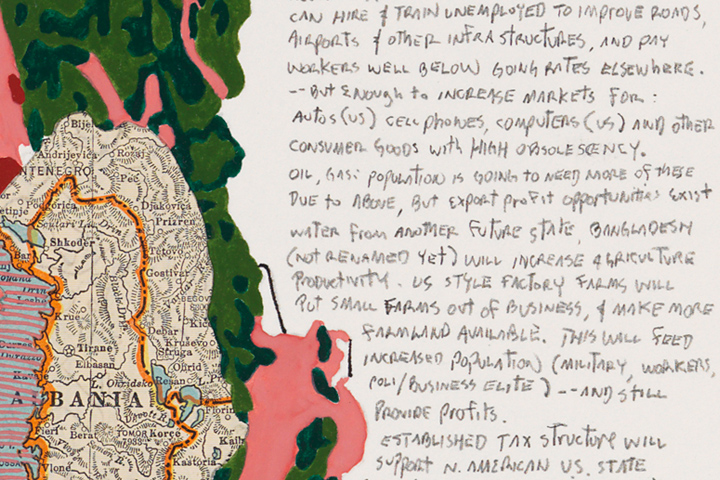 CAN HIRE & TRAIN UNEMPLOYED TO IMPROVE ROADS,
AIRPORTS & OTHER INFRA STRUCTURES, AND PAY
WORKERS WELL BELOW GOING RATES ELSEWHERE.
-- BUT ENOUGH TO INCREASE MARKETS FOR:
AUTOS (US) CELL PHONES, COMPUTERS (US) AND OTHER
CONSUMER GOODS WITH HIGH OBSOLESCENCY.
OIL, GAS: POPULATION IS GOING TO NEED MORE OF THESE
DUE TO ABOVE, BUT EXPORT PROFIT OPPORTUNITIES EXIST
WATER FROM ANOTHER FUTURE STATE, BANGLADESH
(NOT RENAMED YET) WILL INCREASE AGRICULTURE
PRODUCTIVITY. US STYLE FACTORY FARMS WILL
PUT SMALL FARMS OUT OF BUSINESS, & MAKE MORE
FARMLAND AVAILABLE. THIS WILL FEED
INCREASED POPULATION (MILITARY, WORKERS,
POLI/BUSINESS ELITE) -- AND STILL
PROVIDE PROFITS.
ESTABLISHED TAX STRUCTURE WILL
SUPPORT N. AMERICAN U.S. STATE
Bijel
Andrijevica
Rozaj
NTENEGRO
Peć
Podgorica
Djakovica
Scutari L.
Drin
Prizren
Shkodër
Tetovo
Gostivar
Kruë
Debar
Kičevo
Kruševo
Tirane
Struga
Elbasan
Ohrid
L. Ohridsko
Resan
ALBANIA
Florin
Berat
TOMOR
Korçë
Kastoria
Vlonë